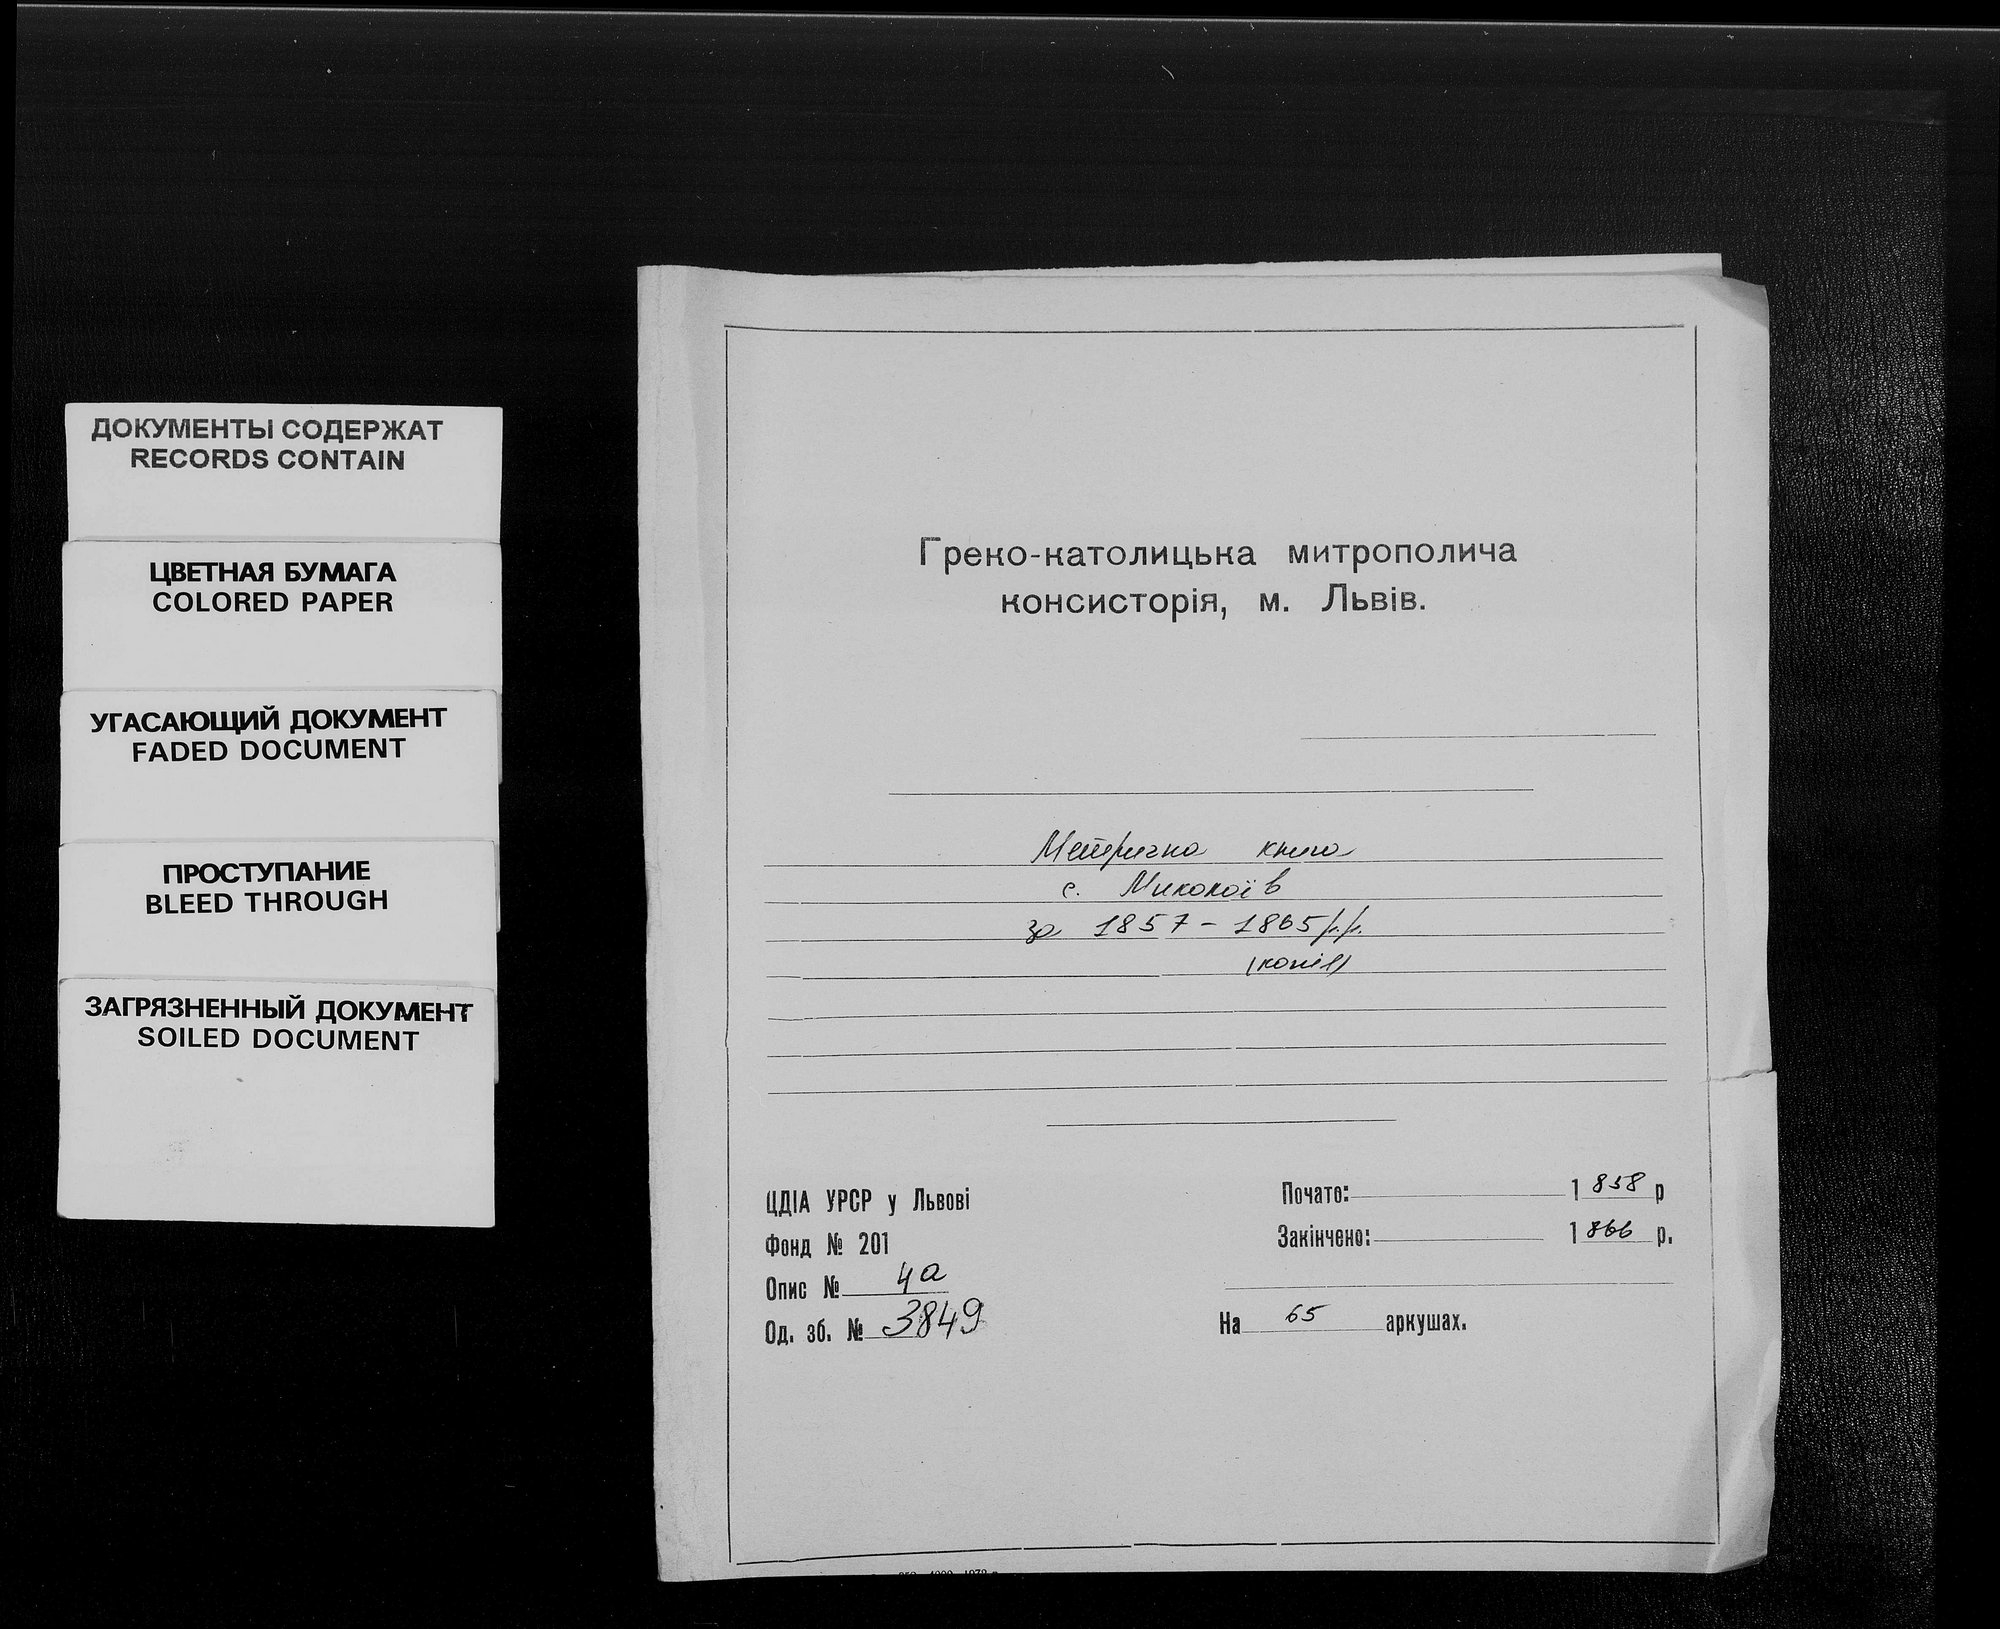 ДОКУМЕНТЫ СОДЕРЖАТ
RECORDS CONTAIN
ЦВЕТНАЯ БУМАГА
COLORED PAPER
УГАСАЮЩИЙ ДОКУМЕНТ
FADED DOCUMENT
ПРОСТУПАНИЕ
BLEED THROUGH
ЗАГРЯЗНЕННЫЙ ДОКУМЕНТ
SOILED DOCUMENT
Греко-католицька митрополича
консисторія, м. Львів.
Метрична книга
с. Миколаїв
за 1857 - 1865 р.р.
(копія)
ЦДІА УРСР у Львові
Фонд № 201
Опис № 4а
Од. зб. № 3849
Почато: 1858 р
Закінчено: 1866 р.
На 65 аркушах.